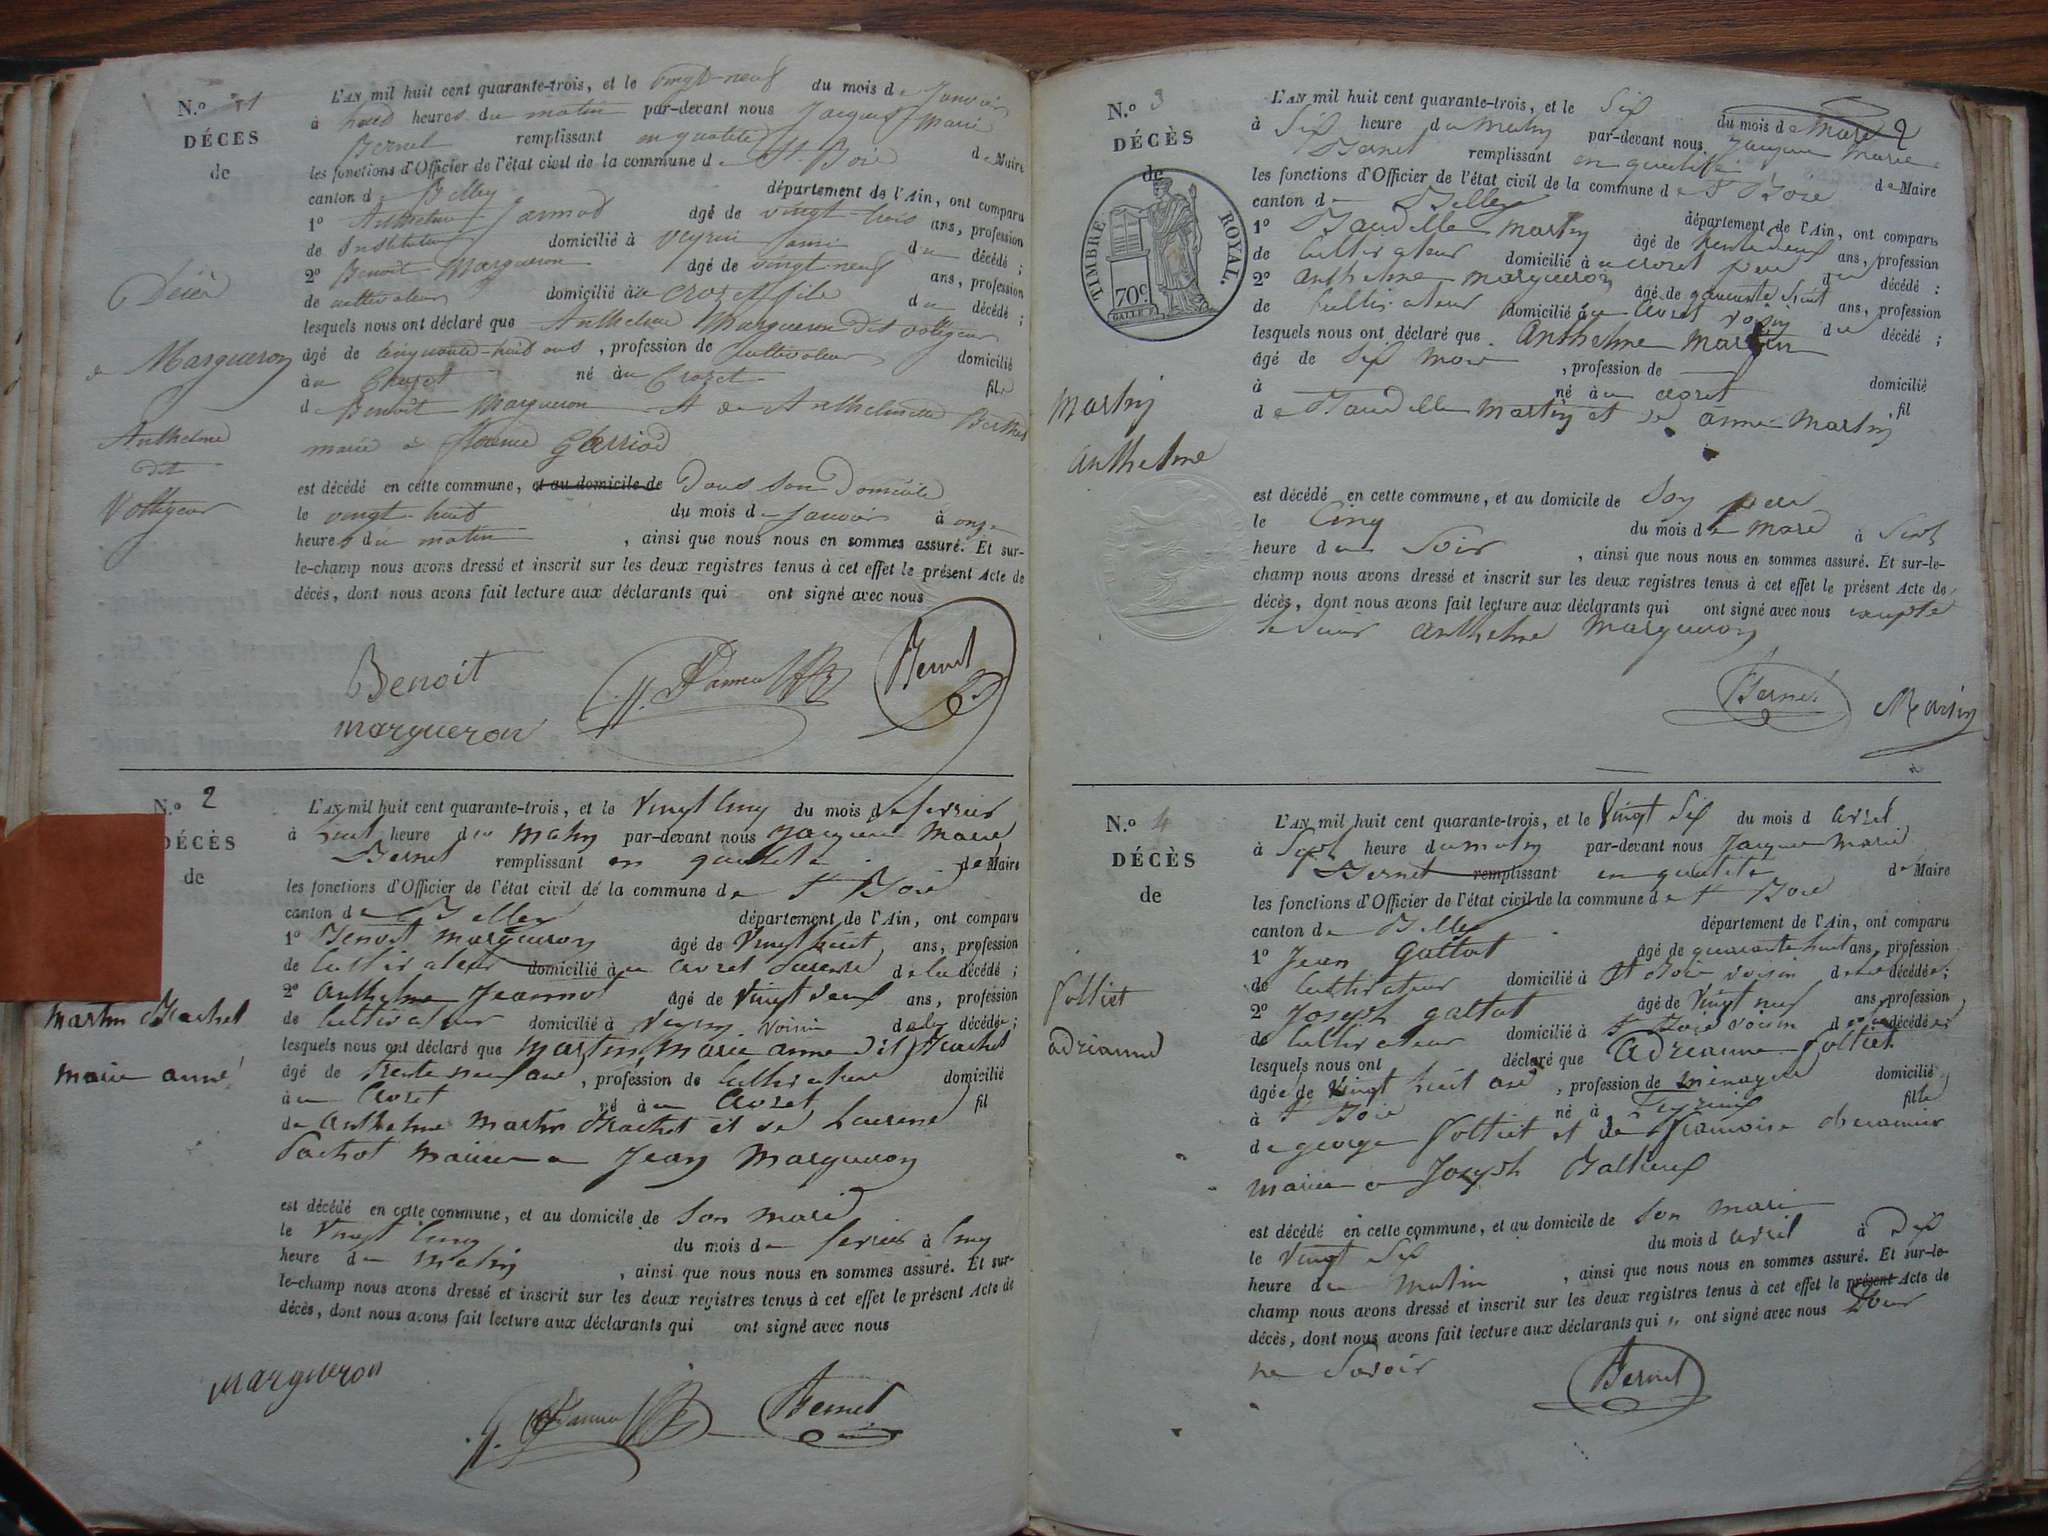 N.o 1
DÉCES
de
Décès
de Margueron
Anthelme
dit
Voltigeur
L'AN mil huit cent quarante-trois, et le vingt-neuf du mois de janvier
à heures du matin par-devant nous Jacques Marie
Bernet remplissant en qualité de Maire
les fonctions d'Officier de l'état civil de la commune de St. Bois
canton de Belley département de l'Ain, ont comparu
1o Anthelme Jannod âgé de vingt-trois ans, profession
de Instituteur domicilié à Veyrin du décédé ;
2o Benoit Margueron âgé de vingt neuf ans, profession
de cultivateur domicilié au Crozet fils du décédé ;
lesquels nous ont déclaré que Anthelme Margueron dit Voltigeur
âgé de cinquante-huit ans , profession de cultivateur domicilié
au Crozet né au Crozet fils
de Benoit Margueron et de Anthelmette Berthet
marié à
est décédé en cette commune, et au domicile de dans son domicile
le vingt-huit du mois de janvier à onze
heures du matin , ainsi que nous nous en sommes assuré. Et sur-
le-champ nous avons dressé et inscrit sur les deux registres tenus à cet effet le présent Acte de
décès, dont nous avons fait lecture aux déclarants qui ont signé avec nous
Benoit
margueron
Bernet
N.o 2
DÉCÈS
de
martin Brachet
marie anne
L'AN mil huit cent quarante-trois, et le vingt cinq du mois de fevrier
à heure du matin par-devant nous Jacques Marie
Bernet remplissant en qualité de Maire
les fonctions d'Officier de l'état civil de la commune de St Bois
canton de Belley département de l'Ain, ont comparu
1o Benoit margueron âgé de vingt huit ans, profession
de cultivateur domicilié au crozet de la décédé ;
2o anthelme Jeannot âgé de vingt deux ans, profession
de cultivateur domicilié à veyrin voisin de la décédée ;
lesquels nous ont déclaré que martin marie anne dit Brachet
âgé de trente neuf ans , profession de cultivateur domicilié
au crozet né au crozet fil
de anthelme martin Brachet et de
Pachot mariée a Jean Margueron
est décédé en cette commune, et au domicile de son mari
le vingt cinq du mois de fevrier à cinq
heure du matin , ainsi que nous nous en sommes assuré. Et sur-
le-champ nous avons dressé et inscrit sur les deux registres tenus à cet effet le présent Acte de
décès, dont nous avons fait lecture aux déclarants qui ont signé avec nous
margueron
Bernet
N.o 3
DÉCÈS
de
TIMBRE ROYAL.
70c.
martin
anthelme
2
L'AN mil huit cent quarante-trois, et le six du mois de mars
à six heure du matin par-devant nous Jacques marie
Bernet remplissant en qualité de Maire
les fonctions d'Officier de l'état civil de la commune de St Bois
canton de Belley département de l'Ain, ont comparu
1o martin âgé de trente deux ans, profession
de cultivateur domicilié au crozet père du décédé ;
2o anthelme margueron âgé de quarante huit ans, profession
de cultivateur domicilié au crozet voisin du décédé ;
lesquels nous ont déclaré que anthelme martin
âgé de six mois , profession de domicilié
à né au crozet fil
de martin et de anne martin
est décédé en cette commune, et au domicile de son père
le cinq du mois de mars à sept
heure du soir , ainsi que nous nous en sommes assuré. Et sur-le-
champ nous avons dressé et inscrit sur les deux registres tenus à cet effet le présent Acte de
décès, dont nous avons fait lecture aux déclarants qui ont signé avec nous excepté
le sieur anthelme margueron
Bernet
Martin
N.o 4
DÉCÈS
de
folliet
adrianne
L'AN mil huit cent quarante-trois, et le vingt six du mois d avril
à sept heure du matin par-devant nous Jacques Marie
Bernet remplissant en qualité de Maire
les fonctions d'Officier de l'état civil de la commune de St Bois
canton de Belley département de l'Ain, ont comparu
1o Jean gattat âgé de quarante huit ans, profession
de cultivateur domicilié à St Bois voisin de la décédée ;
2o Joseph gattat âgé de vingt neuf ans, profession
de cultivateur domicilié à St Bois voisin de la décédée
lesquels nous ont déclaré que adrianne folliet
âgée de vingt huit ans , profession de menagere domicilié
à St Bois né à Peyrieu fille
de george folliet et de francoise
mariée a Joseph
est décédé en cette commune, et au domicile de son mari
le vingt six du mois d avril à
heure du matin , ainsi que nous nous en sommes assuré. Et sur-le-
champ nous avons dressé et inscrit sur les deux registres tenus à cet effet le présent Acte de
décès, dont nous avons fait lecture aux déclarants qui ont signé avec nous pour
ne savoir
Bernet